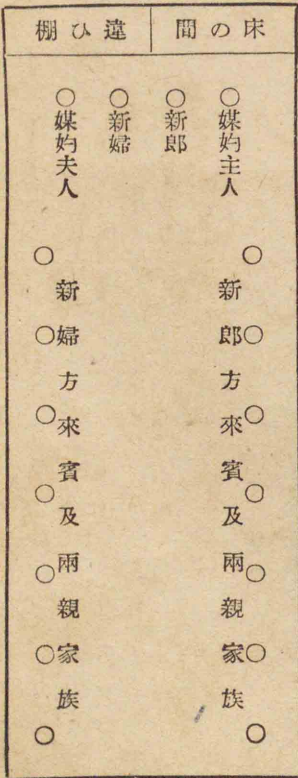 床の間
違ひ棚
○媒妁主人
○新郎
○新婦
○媒妁夫人
新郎方來賓及兩親家族
新婦方來賓及兩親家族